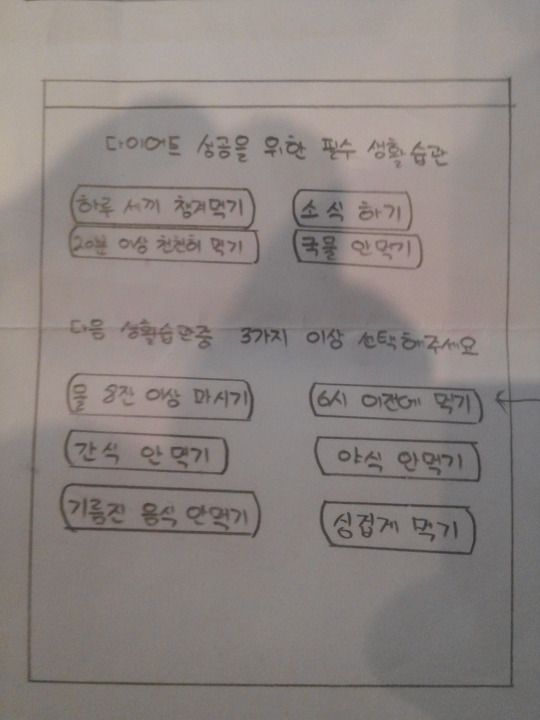 다이어트 성공을 위한 필수 생활습관
하루 세끼 챙겨먹기 소식 하기
20분 이상 천천히 먹기 국물 안먹기
다음 생활습관중 3가지 이상 선택해주세요
물 8잔 이상 마시기 6시 이전에 먹기
간식 안 먹기 야식 안먹기
기름진 음식 안먹기 싱겁게 먹기